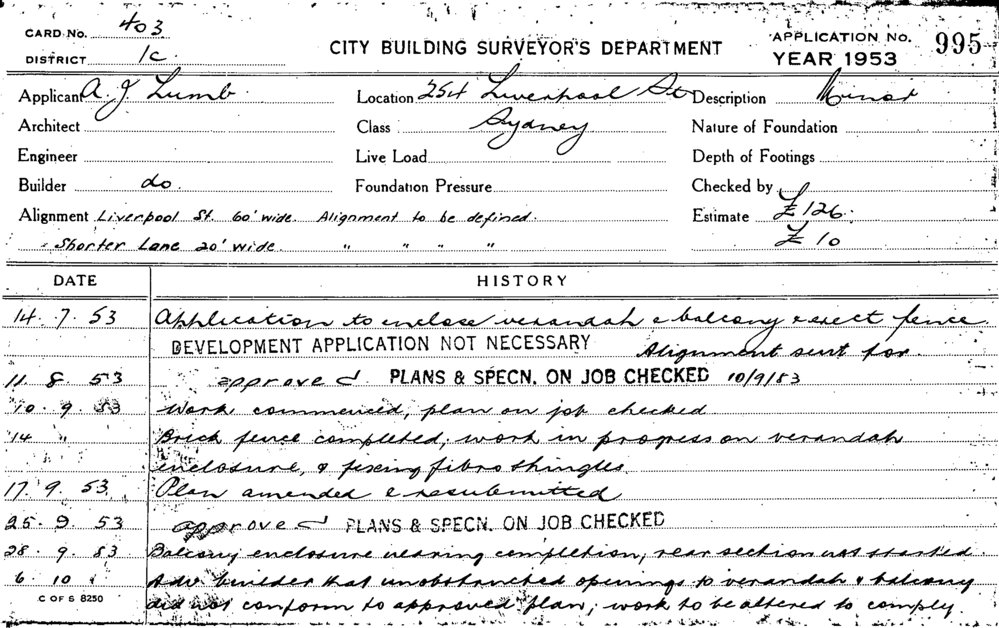 CARD No. 403
DISTRICT 1C
CITY BUILDING SURVEYOR'S DEPARTMENT
APPLICATION No. 995
YEAR 1953
Applicant A. J Lumb Location 254 Liverpool St Description Minor
Architect Class Sydney Nature of Foundation
Engineer Live Load Depth of Footings
Builder do. Foundation Pressure Checked by
Alignment Liverpool St. 60' wide. Alignment to be defined. Estimate £126
" Shorter Lane 20' wide. " " " " £10
DATE HISTORY
14. 7. 53 Application to enclose verandah & balcony & erect fence.
DEVELOPMENT APPLICATION NOT NECESSARY Alignment sent for.
11. 8. 53 approved PLANS & SPECN. ON JOB CHECKED 10/9/53
10. 9. 53 Work commenced, plan on job checked
14 " Brick fence completed, work in progress on verandah
enclosure, & fixing fibro shingles
17. 9. 53. Plan amended & resubmitted
25. 9. 53 approved PLANS & SPECN. ON JOB CHECKED
28. 9. 53 Balcony enclosure nearing completion, rear section not started
6. 10 " Adv. builder that unobstructed openings to verandah & balcony
C OF S 8250 did not conform to approved plan, work to be altered to comply.